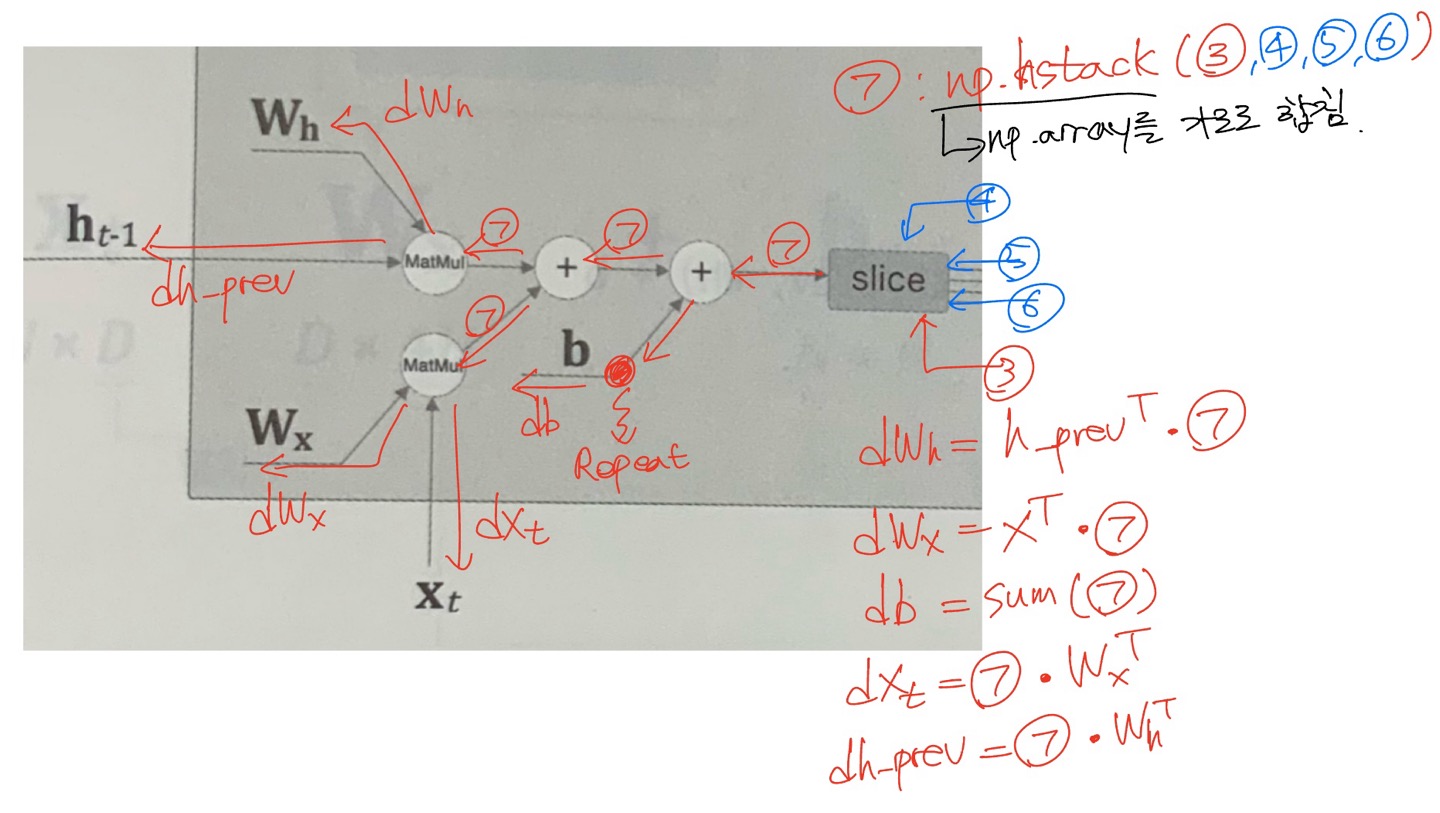 ⑦ : np.hstack (③,④,⑤,⑥)
↳np.array를 가로로 합침.
Wh
dWh
ht-1
dh_prev
MatMul
⑦
+
⑦
+
⑦
slice
④
⑤
⑥
③
⑦
MatMul
b
db
Repeat
Wx
dWx
dXt
xt
dWh = h_prevᵀ · ⑦
dWx = xᵀ · ⑦
db = sum(⑦)
dXt = ⑦ · Wxᵀ
dh_prev = ⑦ · Whᵀ